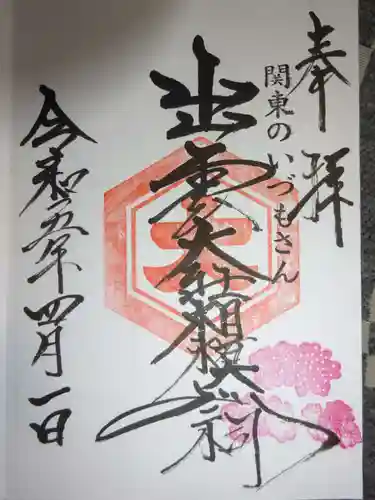 奉拝
関東のいづもさん
出雲大社相模分祠
令和五年四月一日